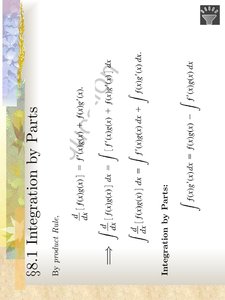 §8.1 Integration by Parts
By product Rule,
d/dx [f(x)g(x)] = f′(x)g(x) + f(x)g′(x).
⟹ ∫ d/dx [f(x)g(x)] dx = ∫ [f′(x)g(x) + f(x)g′(x)] dx
∫ d/dx [f(x)g(x)] dx = ∫ f′(x)g(x) dx + ∫ f(x)g′(x) dx.
Integration by Parts:
∫ f(x)g′(x)dx = f(x)g(x) − ∫ f′(x)g(x) dx